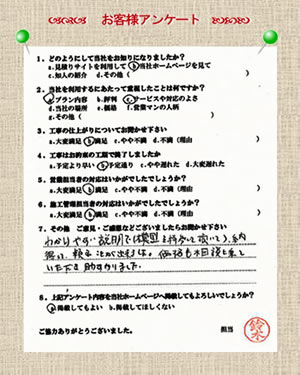 お客様アンケート
1．どのようにして当社をお知りになりましたか？
a.見積りサイトを利用して b.当社ホームページを見て
c.知人の紹介 d.その他（ ）
2．当社を利用するにあたって重視したことは何ですか？
a.プラン内容 b.評判 c.サービスや対応のよさ
d.当社の場所 e.価格 f.営業マンの人柄
g.その他（ ）
3．工事の仕上がりについてお聞かせ下さい
a.大変満足 b.満足 c.やや不満 d.不満（理由 ）
4．工事はお約束の工期で終了しましたか
a.予定より早い b.予定通り c.やや遅れた d.大変遅れた
5．営業担当者の対応はいかがでしたでしょうか？
a.大変満足 b.満足 c.やや不満 d.不満（理由 ）
6．施工管理担当者の対応はいかがでしたでしょうか？
a.大変満足 b.満足 c.やや不満 d.不満（理由 ）
7．その他 ご意見・ご感想などございましたらお聞かせ下さい
わかりやすい説明で
頼むことが出来ました。価格も相談に乗って
いただき助かりました。
8．上記アンケート内容を当社ホームページへ掲載してもよろしいでしょうか？
a.掲載してもよい b.掲載してほしくない
ご協力ありがとうございました。 担当 鈴木